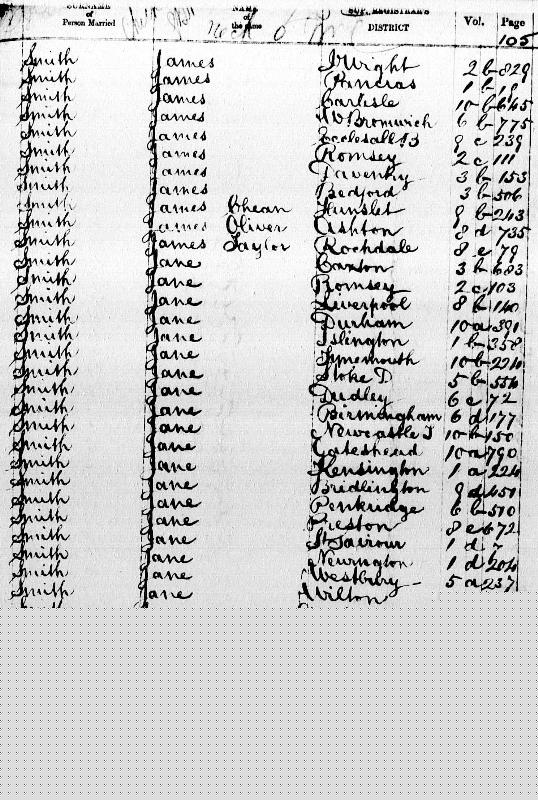 SURNAME of Person Married NAME of the same SUP. REGISTRAR'S DISTRICT Vol. Page
105
Smith James I Wight 2b 829
Smith James Pancras 1b
Smith James Carlisle 10b 645
Smith James W Bromwich 6b 775
Smith James Ecclesall B 9c 239
Smith James Romsey 2c 111
Smith James Daventry 3b 153
Smith James Bedford 3b 506
Smith James Hunslet 9b 243
Smith James Oliver Ashton 8d 735
Smith James Taylor Rochdale 8e 79
Smith Jane Caxton 3b 683
Smith Jane Romsey 2c 103
Smith Jane Liverpool 8b 140
Smith Jane Durham 10a 391
Smith Jane Islington 1b 358
Smith Jane Tynemouth 10b 224
Smith Jane Stoke D 5b 554
Smith Jane Dudley 6c 72
Smith Jane Birmingham 6d 177
Smith Jane Newcastle T 10b 150
Smith Jane Gateshead 10a 790
Smith Jane Kensington 1a 224
Smith Jane Bridlington 9d 451
Smith Jane Penkridge 6b 510
Smith Jane Preston 8e 672
Smith Jane St Saviour 1d 7
Smith Jane Newington 1d 204
Smith Jane Westbury 5a 237
Smith Jane Wilton